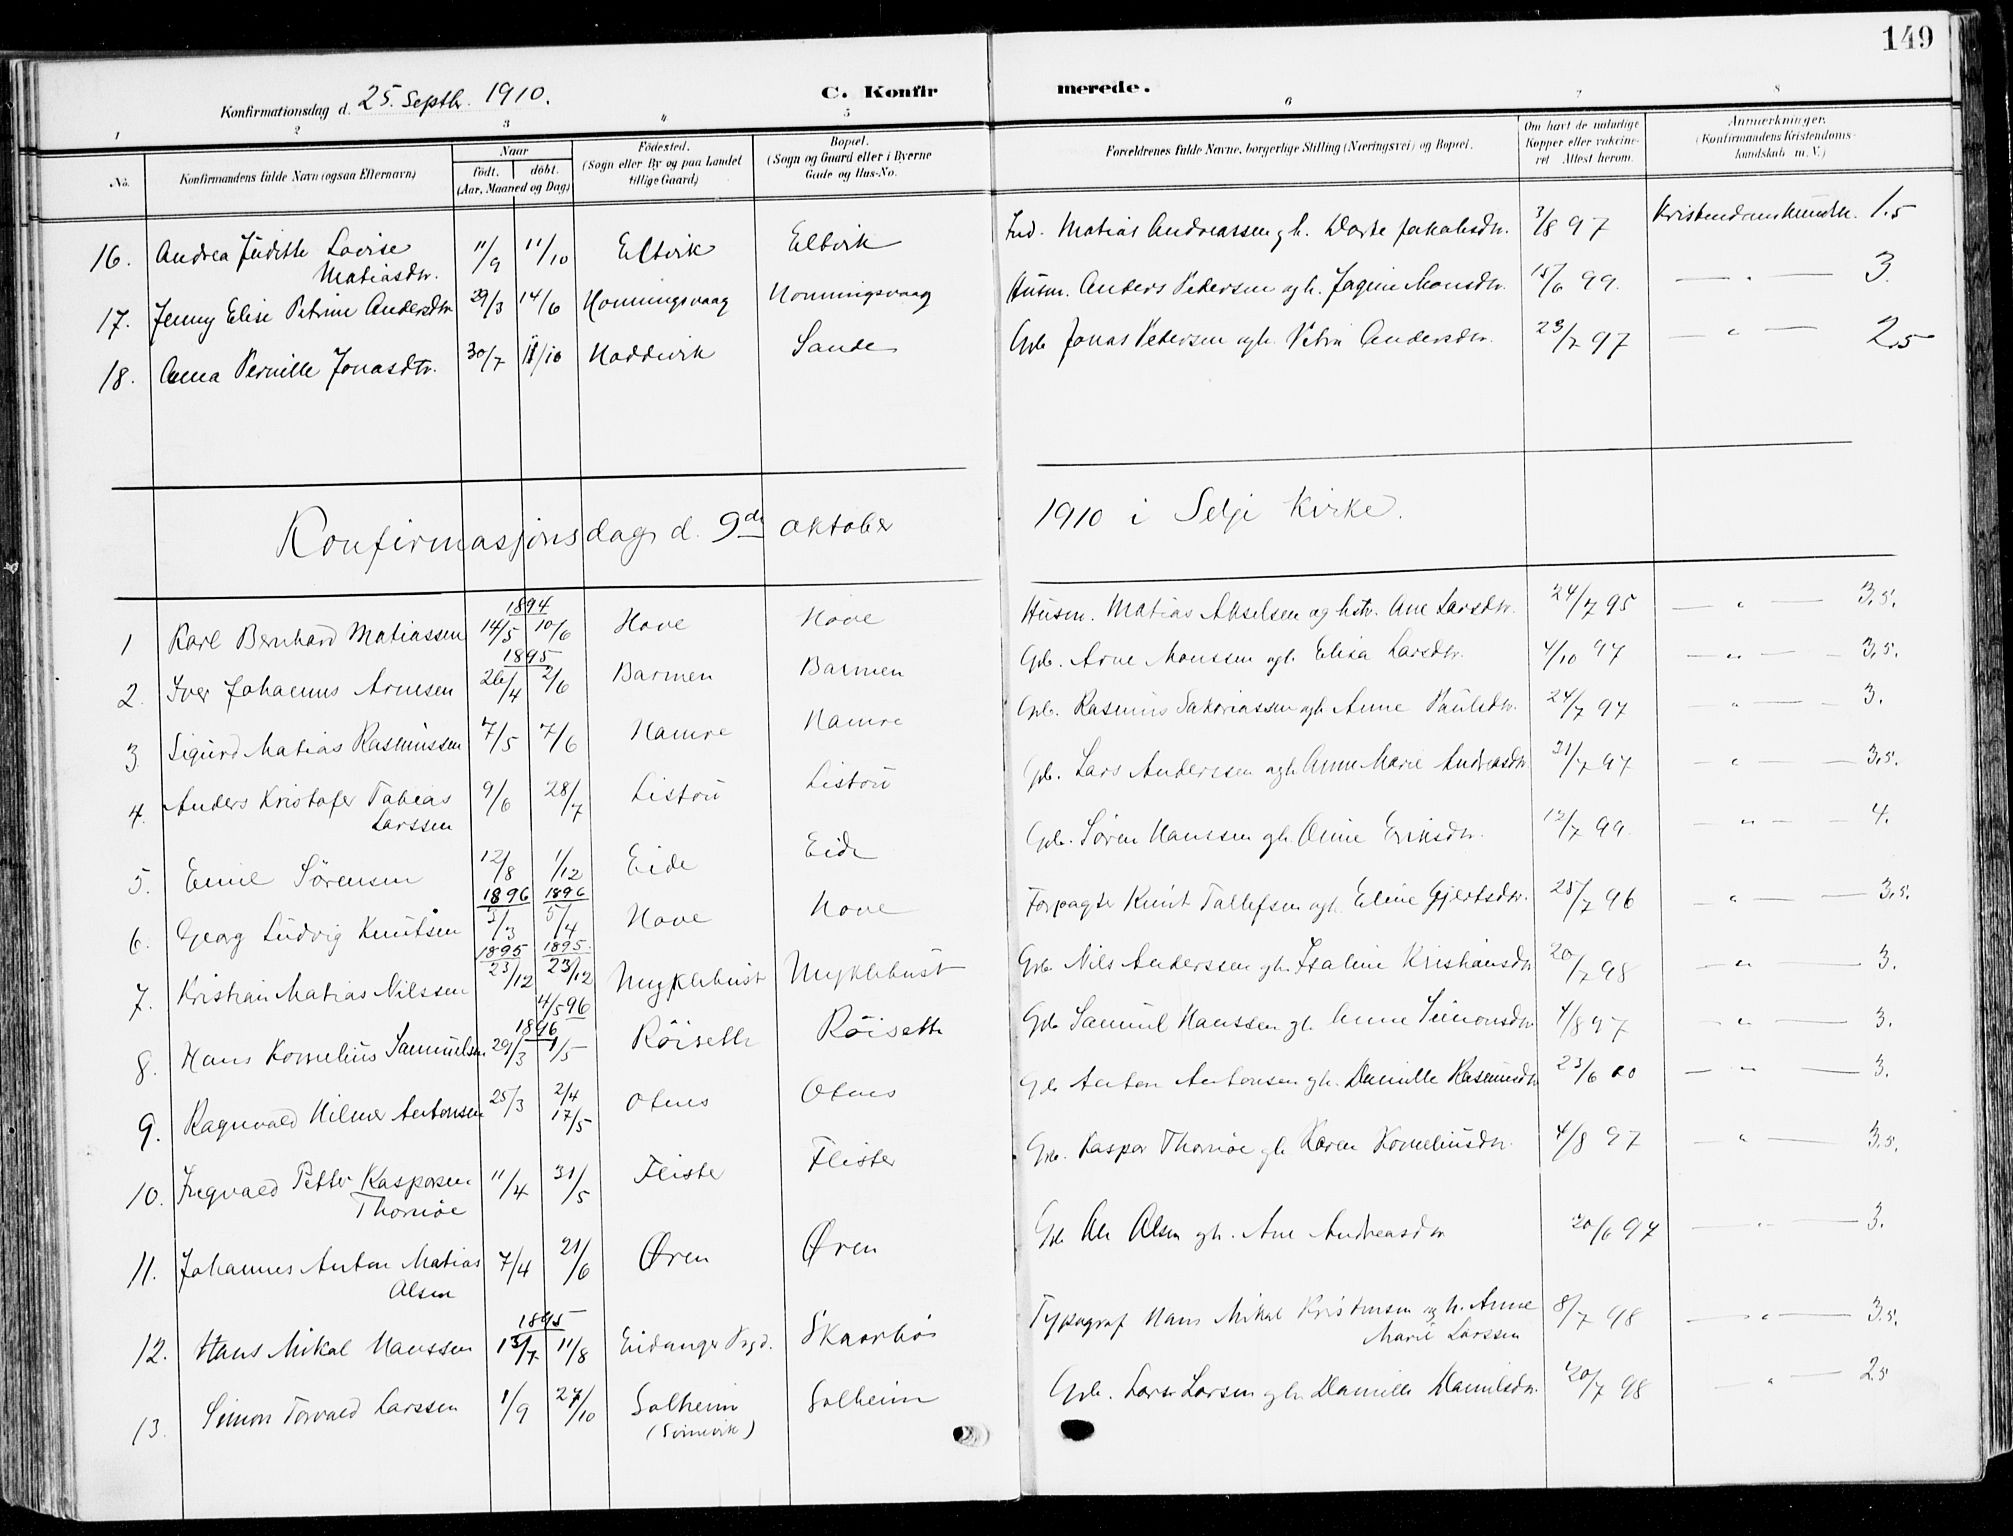 149
Konfirmationsdag d. 25. Septbr. 1910.
C. Konfirmerede.
1 2 3 4 5 6 7 8
No.
Konfirmandens fulde Navn (ogsaa Efternavn)
Naar
födt. döbt.
(Aar, Maaned og Dag)
Födested.
(Sogn eller By og paa Landet
tillige Gaard)
Bopæl.
(Sogn og Gaard eller i Byerne
Gade og Hus-No.
Forældrenes fulde Navne, borgerlige Stilling (Næringsvei) og Bopæl.
Om havt de naturlige
Kopper eller vaccine-
ret Attest herom.
Anmærkninger.
(Konfirmandens Kristendoms-
kundskab m. V.)
16. Andrea Judith Lovise 11/9 11/10 Eltvik Eltvik Ind. Matias Andreassen g h. Dorte Jakobsdr. 3/8 97 Kristendomskundsk. 1.5
Matiasdtr.
17. Jenny Elise Petrine Andersdtr 29/3 14/6 Honningsvaag Honningsvaag Husm. Anders Pedersen og h. Jagine Monsdtr. 15/6 99. — " — 3.
18. Anna Pernille Jonasdtr. 30/7 11/10 Hoddevik Sande Gbr Jonas Pedersen og h. Petra Andersdtr. 23/7 97 — " — 2.5
Konfirmasjonsdag d. 9de oktober 1910 i Selje Kirke.
1894
1 Karl Bernhard Matiassen 14/5 10/6 Hove Hove Husm. Matias Akselsen og hstr. Ane Larsdtr. 24/7 95 — " — 3.5.
1895
2. Iver Johannes Arnesen 26/4 2/6 Barmen Barmen Gbr. Arne Monssen og h. Elisa Larsdtr. 4/10 97 — " — 3.5.
3 Sigurd Matias Rasmussen 7/5 7/6 Hamre Hamre Gbr. Rasmus Sakariassen og h. Anne Paulsdtr. 24/7 97 — " — 3.
4. Anders Kristofer Tobias 9/6 28/7 Listou Listou Gbr. Lars Anderssen og h. Anne Marie Andreasdtr. 31/7 97 — " — 3.5.
Larssen
5. Emil Sørensen 12/8 1/12 Eide Eide Gbr. Søren Hanssen g h. Anne Eriksdtr. 12/7 99. — " — 4.
1896 1896
6. Georg Ludvig Knutsen 5/3 5/4 Hove Hove Forpagter Knut Tallefsen og h. Eline Gjertsdtr. 25/7 96 — " — 3.5.
1895 1895.
7. Kristian Matias Nilssen 23/12 23/12 Myklebust Myklebust Gbr Nils Anderssen g h. Isaline Kristiansdtr 20/7 98 — " — 3.
4/5 96
1896
8. Hans Kornelius Samuelsen 29/3 1/5 Röiseth Röiseth Gbr Samuel Hanssen g h. Anne Simonsdtr. 4/8 97 — " — 3.
9. Ragnvald Hilmer Antonsen 25/3 2/4 Otnes Otnes Gbr Anton Antonsen g h. Pernille Rasmusdtr 23/6 00 — " — 3.
17/5
10. Ingvald Petter Kaspersen 11/4 31/5 Fliste Flister Gbr. Kasper Thornøe g h Karen Korneliusdtr. 4/8 97 — " — 3.5.
Thornøe
11. Johannes Anton Matias 7/4 21/6 Øren Øren Gbr Ole Olsen g h. Ane Andreasdtr 20/6 97 — " — 3.
Olsen
1895
12. Hans Mikal Hanssen 13/7 11/8 Eidanger Prgd. Skaarbø Typograf Hans Mikal Kristensen og h. Anne 8/7 98 — " — 3.5.
Marie Larssen
13. Simon Torvald Larssen 1/9 27/10 Solheim Solheim Gbr. Lars Larsen g h. Pernille Danielsdtr. 20/7 98 — " — 2.5